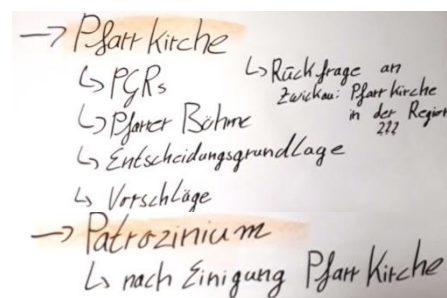 → Pfarrkirche
↳ PGRs
↳ Pfarrer Böhme
↳ Entscheidungsgrundlage
↳ Vorschläge
↳ Rückfrage an
Zwickau: Pfarrkirche
in der Region
???
→ Patrozinium
↳ nach Einigung Pfarrkirche